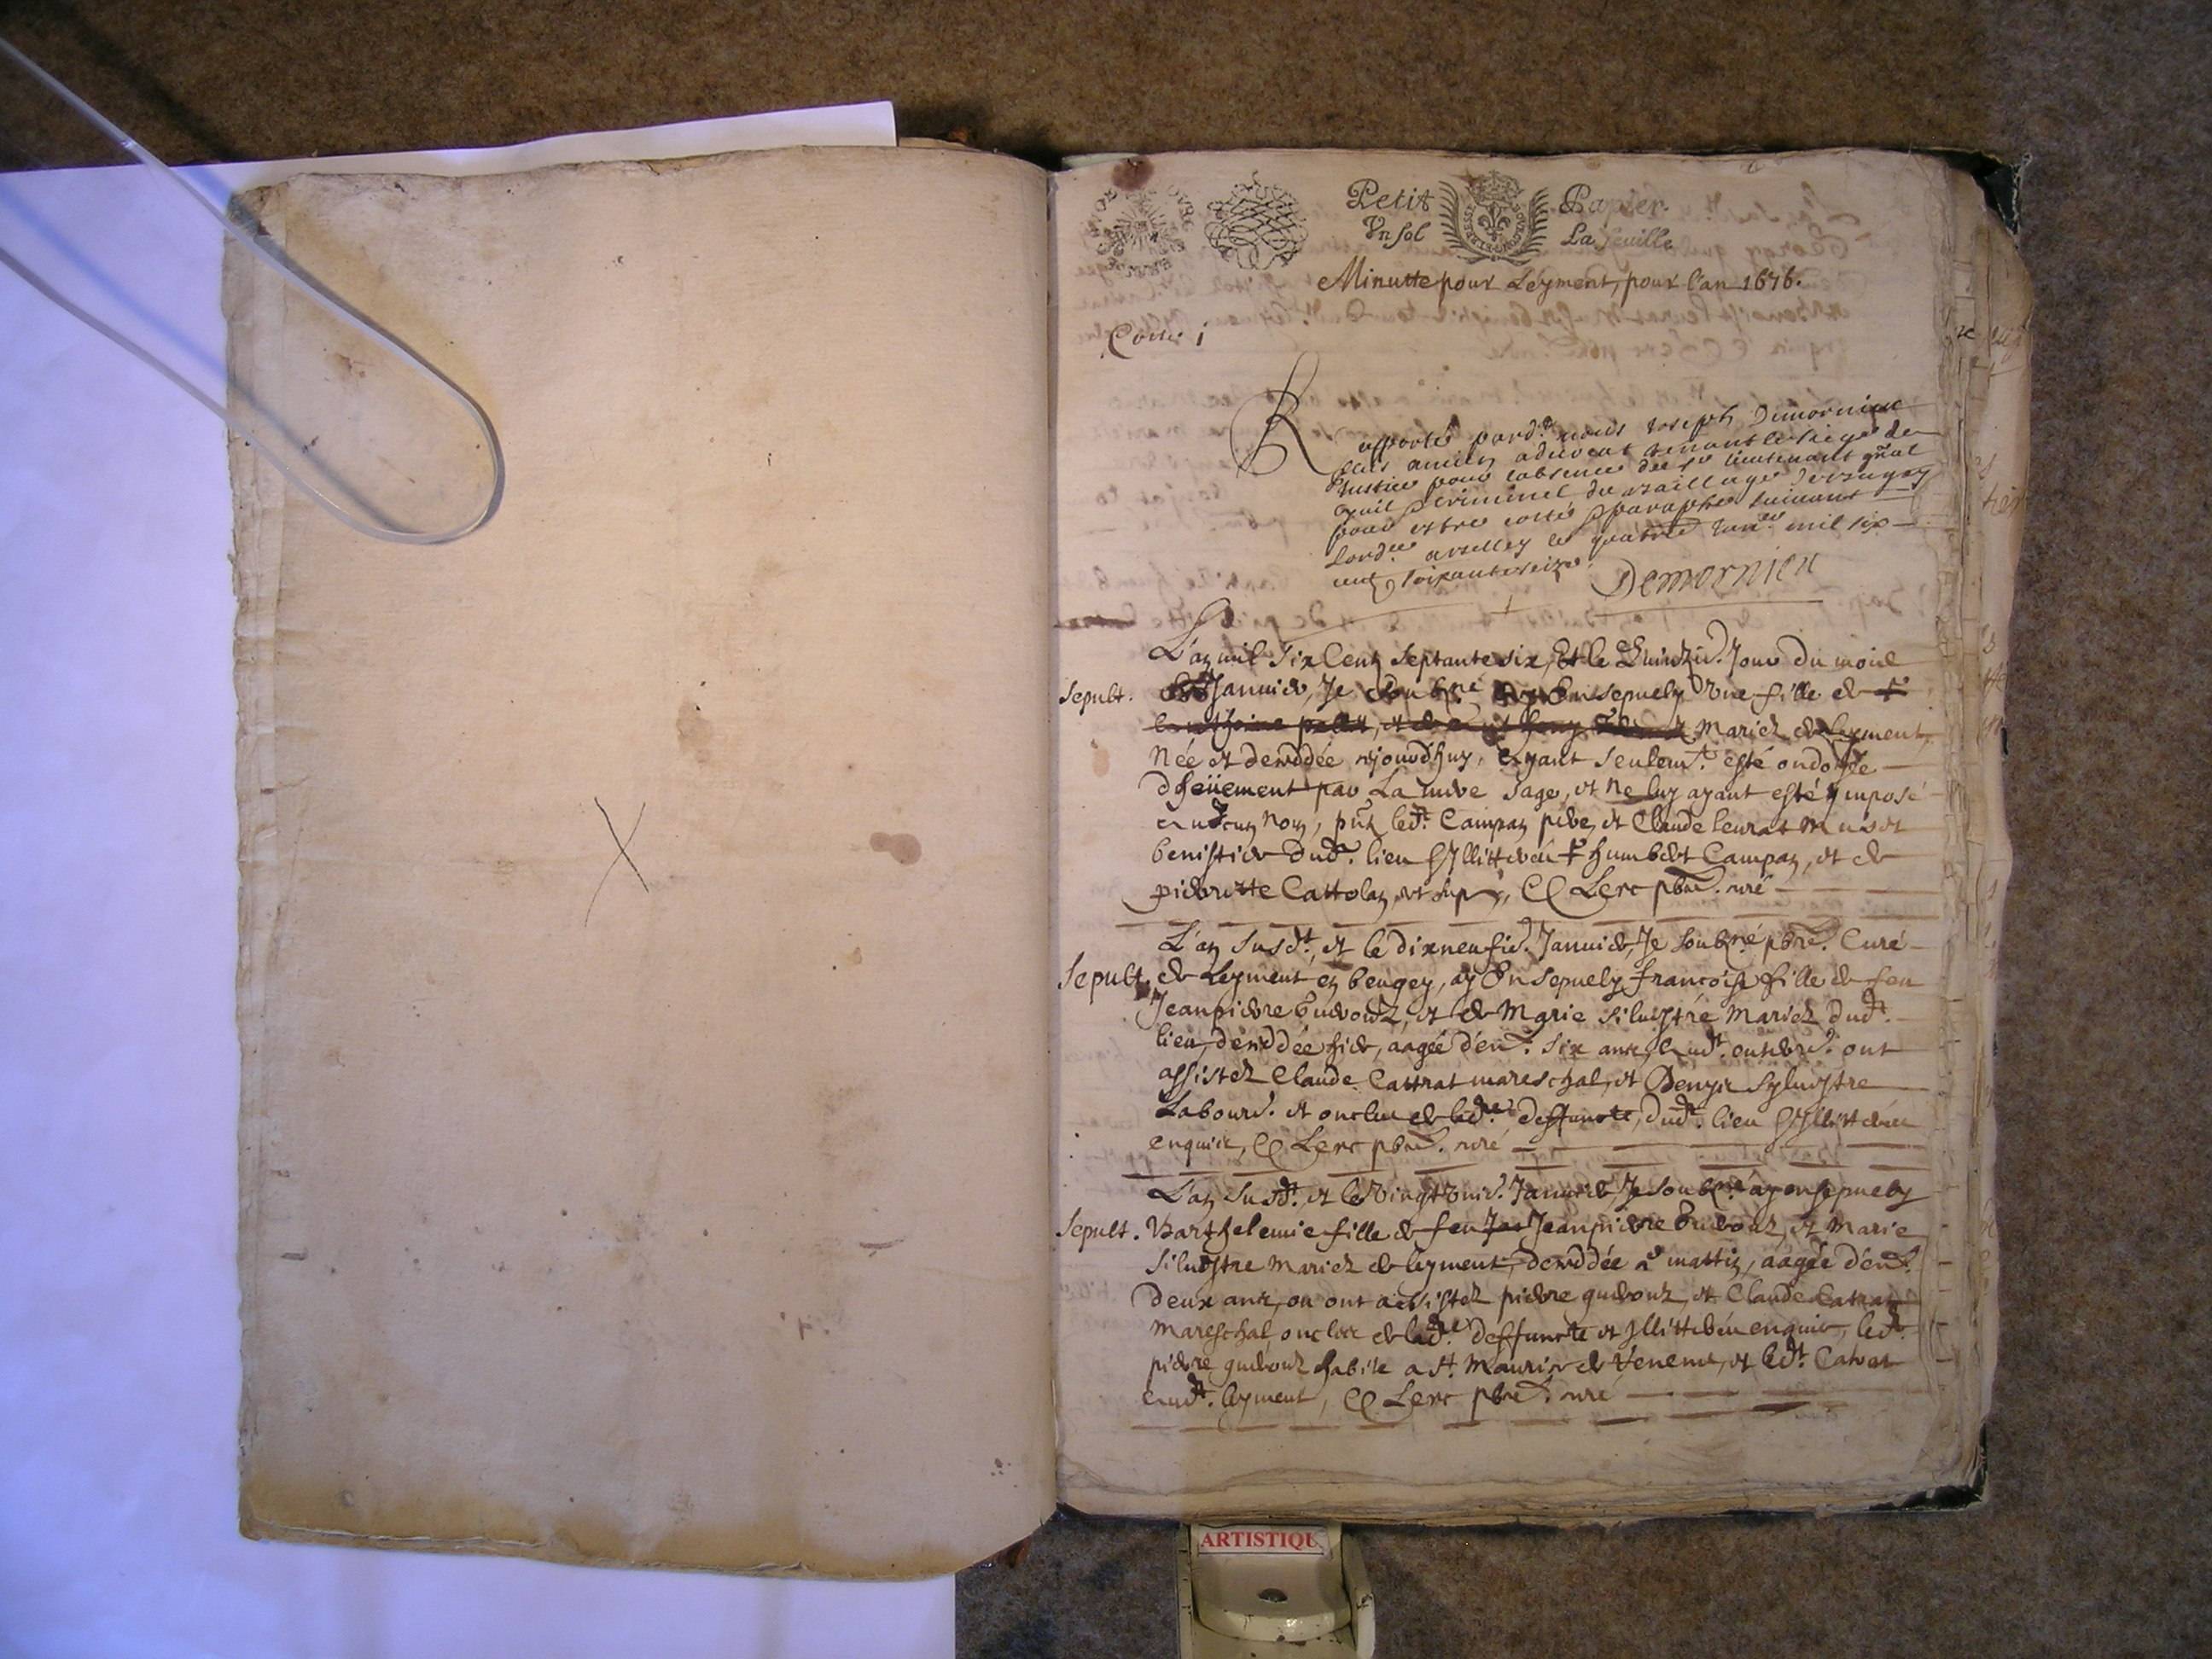 Petit Papier.
Un sol La feuille
Minutte pour Leyment, pour l'an 1676.
Cotte i
Rapporté pard.t nous Joseph Demornieu
plus ancien advocat tenant le siege de
Justice pour l'absence du sr lieutenant gñal
civil & criminel du Baillage de Bugey
pour estre cotté & paraphé suivant
lord.ce a Belley le quatrie Janer mil six
cent soixante seize
Demornieu
L'an mil six Cent septante six, Et le Quinzie. Jour du mois
sepult. Janvier, Je soubné ay Ensepuely une fille de
mariez de leyment,
Née et deceddée ajourdhuy, ayant seulemt. esté ondoyée
par La mere sage, et ne luy ayant esté imposé
aucun Nom, pñt ledt. Campan pere, et Claude leurat
dudt. lieu Illitteré humbert Campan, et de
pierrette Cattolan, C Lerc pbre. curé
L'an susdt., et le dixneufie. Janvier, Je soubné pbre. Curé
Sepult. de Leyment en beugey, ay Ensepuely francoise fille de feu
Jeanpierre et de Marie silvestre Mariez dudt.
lieu, deceddée hier, aagée d'en. six ans, ont
assistez Claude Cattrat mareschal, et Denys sylvestre
Labourr. et oncles de ladte. deffuncte, dudt. lieu Illitteréz
enquis, C Lerc pbre. curé
L'an susdt. et le vingt unie. Janvier, Je soubné ay ensepuely
Sepult. Barthelemie fille de feu Jeanpierre et Marie
silvestre mariez de leyment, deceddée ce mattin, aagée d'en.
deux ans, ou ont assistez pierre et Claude Catrat
mareschal, oncles de ladte. deffuncte et Illitteréz enquis, ledt.
pierre habite a st. Mauris de Remens, et ledt. Catrat
audt. leyment, C Lerc pbre. curé
ARTISTIQU